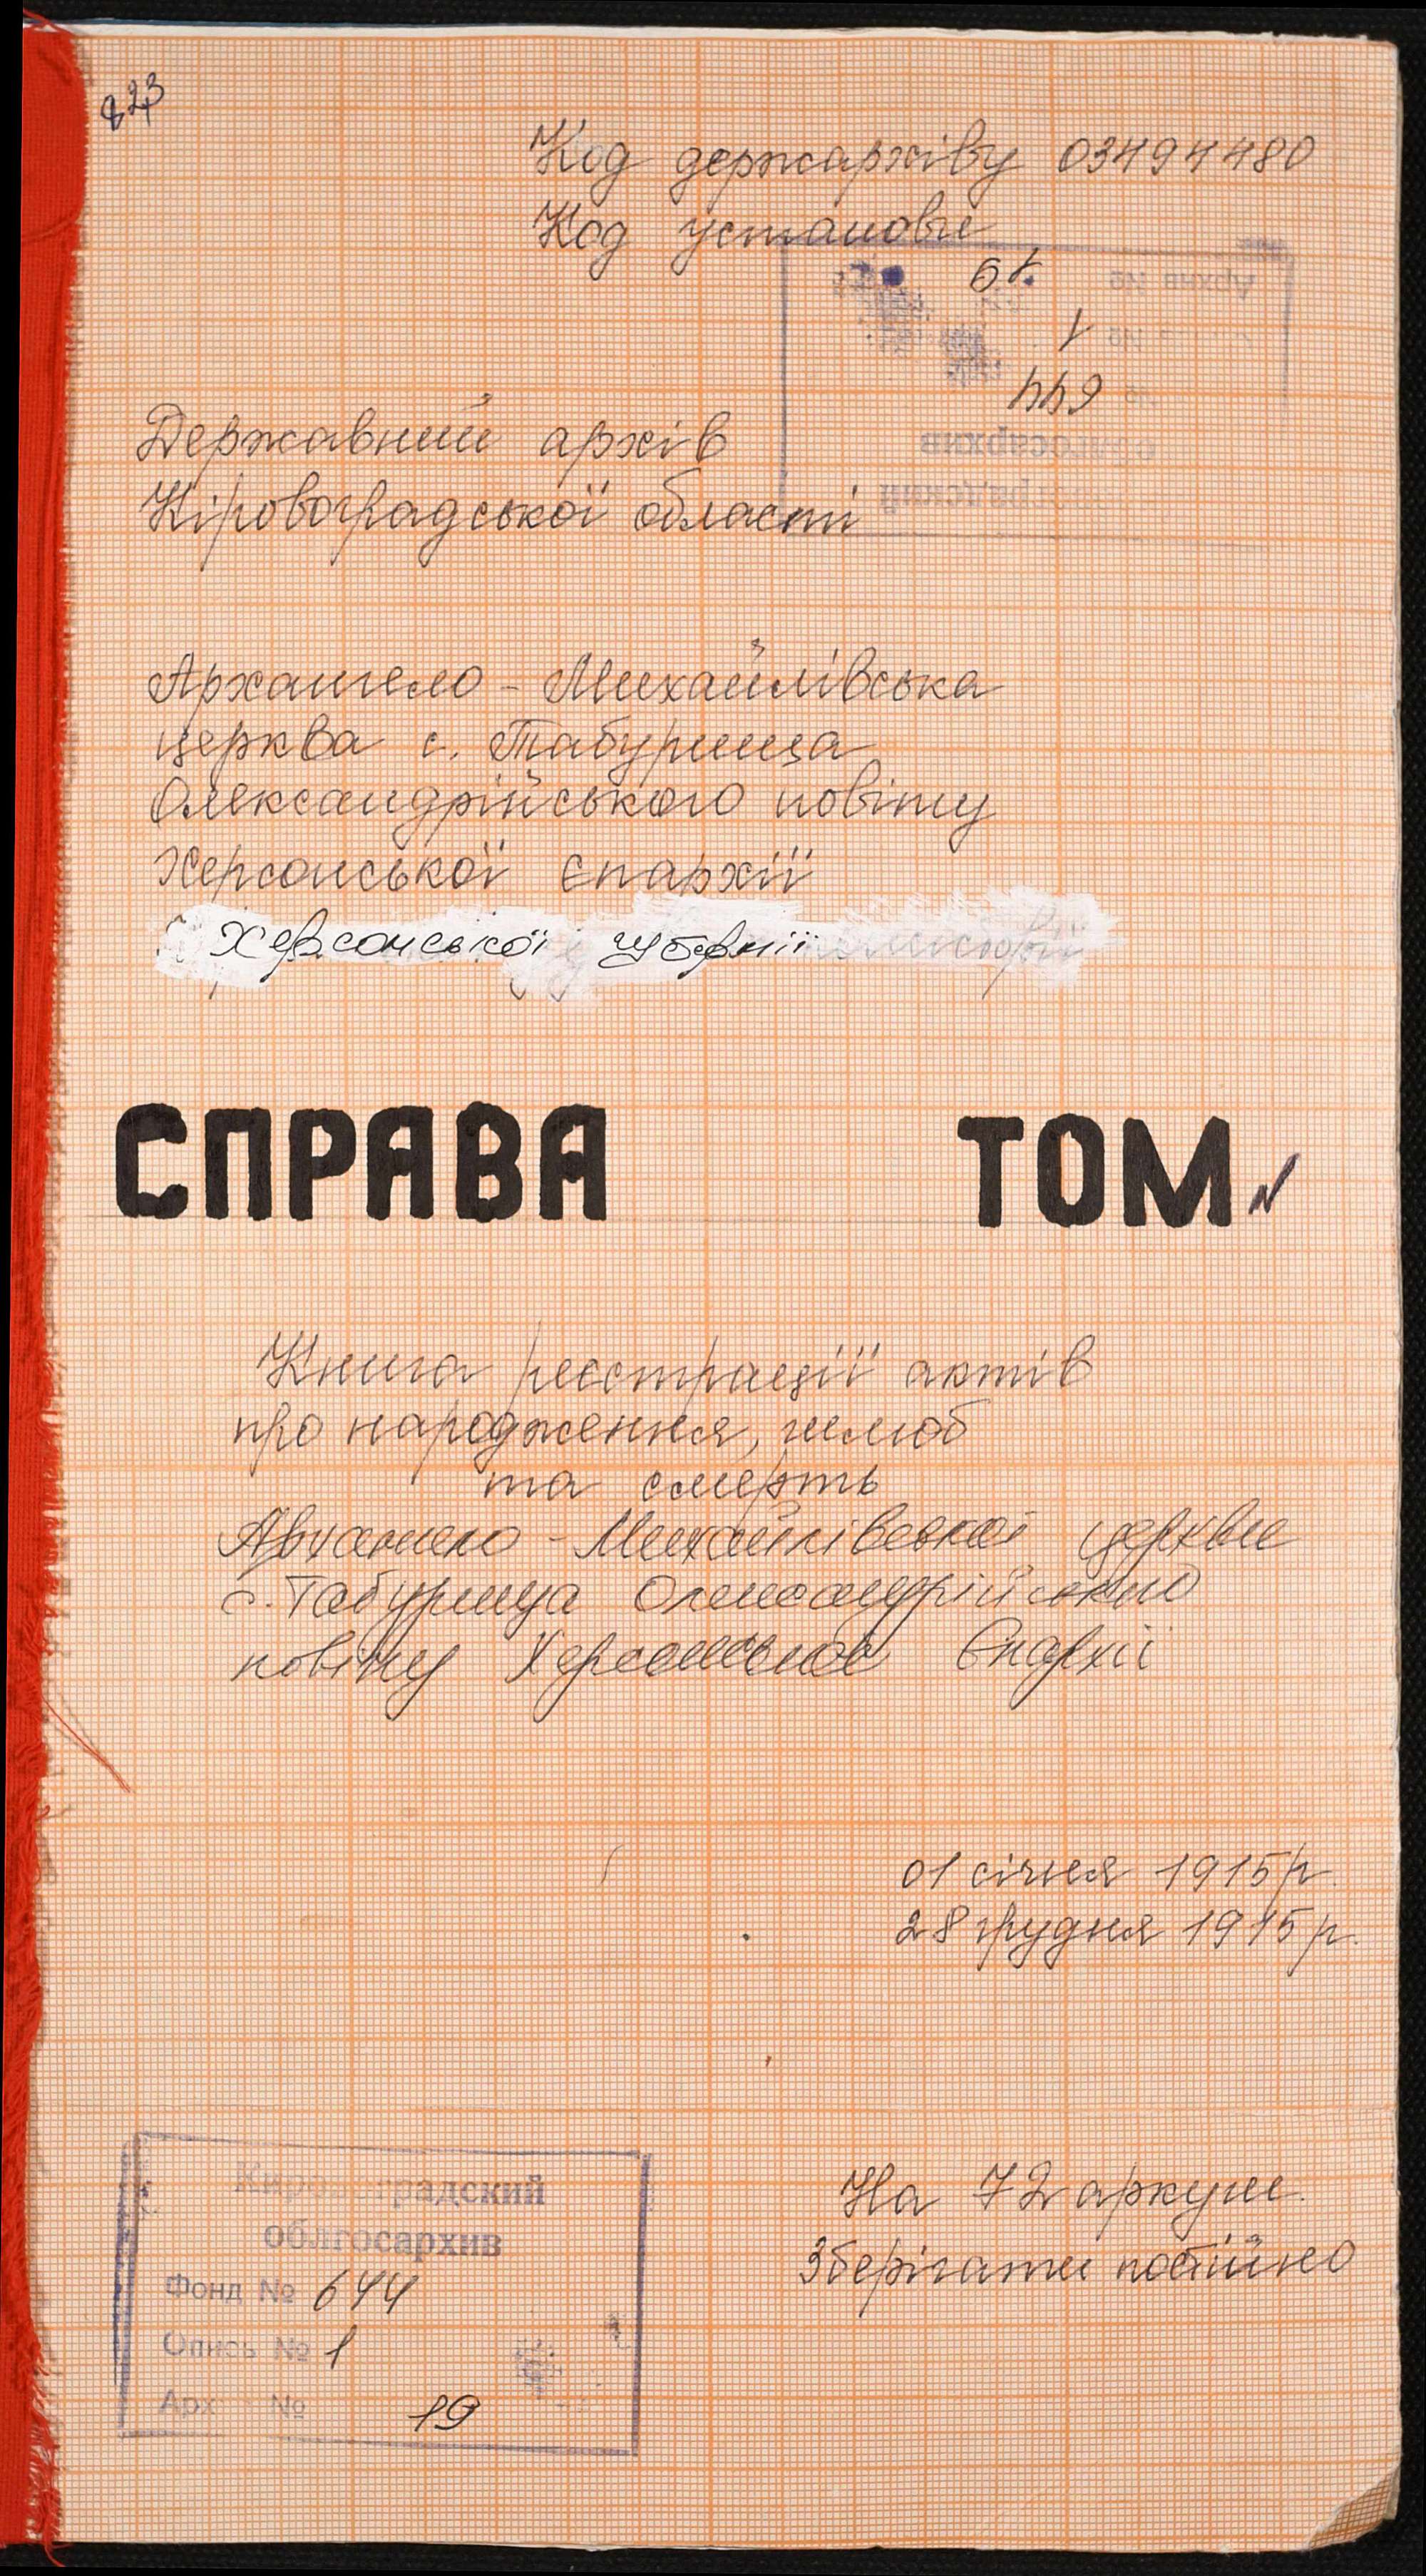 823
Код держархіву 03494480
Код установи
Архив №
19
1
644
облгосархив
Державний архів
Кіровоградської області
Архангело - Михайлівська
церква с. Табурища
Олександрійського повіту
Херсонської єпархії
Херсонської губернії
СПРАВА ТОМ
Книга реєстрації актів
про народження, шлюб
та смерть
Архангело - Михайлівської церкви
с. Табурища Олександрійського
повіту Херсонської Єпархії
01 січня 1915 р.
28 грудня 1915 р.
На 72 аркуш.
Зберігати постійно
Кировоградский
облгосархив
Фонд № 644
Опись № 1
Арх № 19